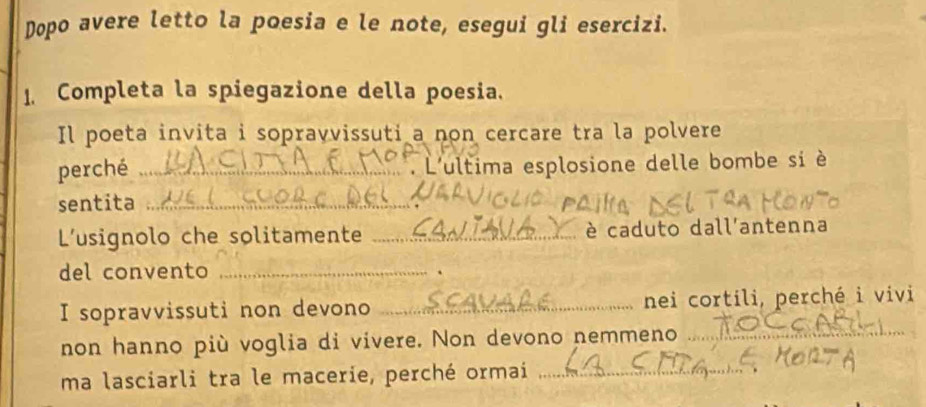 Dopo avere letto la poesia e le note, esegui gli esercizi.
1. Completa la spiegazione della poesia.
Il poeta invita i sopravvissuti a non cercare tra la polvere
perché LA CITTÀ È MORTA. L'ultima esplosione delle bombe si è
sentita NEL CUORE DEL NARVIGLIO PRIMA DEL TRAMONTO
L'usignolo che solitamente CANTAVA è caduto dall'antenna
del convento .
I sopravvissuti non devono SCAVARE nei cortili, perché i vivi
non hanno più voglia di vivere. Non devono nemmeno TOCCARLI
ma lasciarli tra le macerie, perché ormai LA CITTA È MORTA.